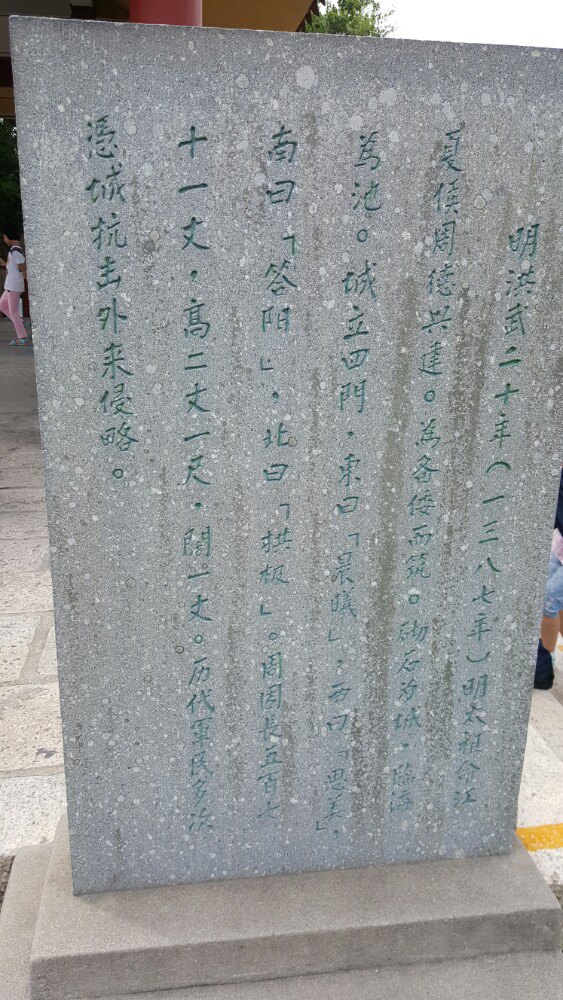 明洪武二十年(一三八七年)明太祖命江
夏侯周德兴建。為备倭而筑。砌石为城，臨海
為池。城立四門，東曰「晨曦」，西曰「思美」，
南曰「答阳」，北曰「拱极」。周囲長五百七
十一丈，高二丈一尺，闊一丈。历代軍民多次
憑城抗击外来侵略。